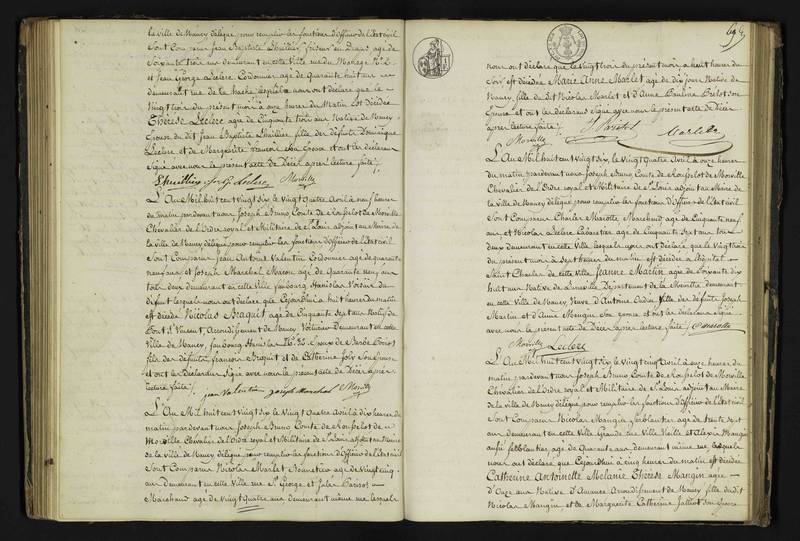 la Ville de Nancy délégué pour remplir les fonctions d'Officier de l'Etat civil
Sont Comparus Jean Baptiste Lhuillier, friseur en Draps, agé de
Soixante trois ans demeurant en cette Ville rue du Manège
et Jean George Leclerc Cordonnier agé de Quarante huit ans
demeurant rue de la hache lesquels nous ont déclaré que le
Vingt trois du présent mois à onze heures du Matin Est Décédée
Thérèse Leclerc agée de Cinquante trois ans Native de Nancy
Epouse du dit Jean Baptiste Lhuillier fille des défunts Dominique
Leclerc et de Marguerite françois Sa Epouse et ont les déclarans
Signé avec nous le présent acte de Décès après lecture faite
Lhuillier J. G. Leclerc Morville
L'An Mil huit cent Vingt Six, le Vingt quatre Avril à neuf heures
du matin pardevant nous Joseph Bruno, Comte de Rousselot de Morville
Chevalier de l'Ordre royal et Militaire de St Louis adjoint au Maire de
la Ville de Nancy délégué pour remplir les fonctions d'Officier de l'Etat civil
Sont Comparus Jean Antoine Valentin Cordonnier agé de quarante
neuf ans et Joseph Marchal Macon agé de Quarante neuf ans
tous deux demeurant en cette Ville faubourg Stanislas Voisins du
défunt lesquels nous ont déclaré que Cejourdhui à huit heures du matin
est décédé Nicolas Braquit agé de Cinquante sept ans Natif de
Pont St Vincent, Arrondissement de Nancy, Voiturier Demeurant en cette
Ville de Nancy, faubourg Stanislas époux de Barbe
fils des défunts françois Braquit et de Catherine Joly Son Epouse
et ont les Déclarans Signé avec nous le présent acte de Décès après
lecture faite
jean Valentin joseph Marchal Morville
L'An Mil huit cent Vingt Six le Vingt quatre Avril à dix heures du
matin pardevant nous Joseph Bruno Comte de Rousselot de
Morville, Chevalier de l'Ordre royal et Militaire de St Louis adjoint au Maire
de la Ville de Nancy délégué pour remplir les fonctions d'Officier de l'Etat civil
Sont Comparus Nicolas Marlet agé de Vingt cinq
ans Demeurant en cette Ville rue St George et Jules
Marchand agé de Vingt Quatre ans demeurant même rue lesquels
nous ont déclaré que le Vingt trois du présent mois à huit heures du
Soir est décédée Marie Anne Marlet agée de dix jours Native de
Nancy, fille du dit Nicolas Marlet et d'Anne Pauline son
Epouse et ont les déclarans Signé avec nous le présent acte de Décès
après lecture faite
Morville Marlet
L'An Mil huit cent Vingt Six, le Vingt quatre Avril à onze heures
du matin pardevant nous Joseph Bruno Comte de Rousselot de Morville
Chevalier de l'Ordre royal et Militaire de St Louis adjoint au Maire de
la Ville de Nancy délégué pour remplir les fonctions d'Officier de l'Etat civil
Sont Comparus Charles Marotte Marchand agé de Cinquante neuf
ans et Nicolas Leclerc Cabaretier agé de Cinquante Sept ans tous
deux demeurant en cette Ville lesquels nous ont déclaré que le Vingt trois
du présent mois à Sept heures du matin est décédée à l'hôpital
Saint Charles de cette Ville Jeanne Martin agée de Soixante dix
huit ans Native de Lunéville Département de la Meurthe demeurant
en cette Ville de Nancy, Veuve d'Antoine fille des défunts Joseph
Martin et d'Anne Mangin Son Epouse et ont les déclarans Signé
avec nous le présent acte de Décès après lecture faite Marotte
Morville Leclerc
L'An Mil huit cent Vingt Six le Vingt cinq Avril à onze heures du
matin pardevant nous Joseph Bruno Comte de Rousselot de Morville
Chevalier de l'Ordre royal et Militaire de St Louis adjoint au Maire
de la Ville de Nancy délégué pour remplir les fonctions d'Officier de l'Etat civil
Sont Comparus Nicolas Mangin ferblantier agé de trente sept
ans demeurant en cette Ville Grande rue Ville Vieille et Alexis Mangin
aussi ferblantier agé de Quarante ans demeurant même rue, lesquels
nous ont déclaré que Cejourdhui à cinq heures du matin est décédée
Catherine Antoinette Melanie Thérèse Mangin agée
d'Onze ans Native d'Amance Arrondissement de Nancy fille du dit
Nicolas Mangin, et de Marguerite Catherine son Epouse